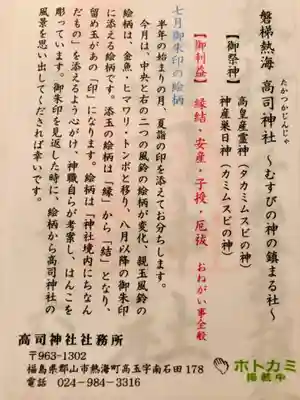 磐梯熱海 高司神社 ～むすびの神の鎮まる社～
たかつかじんじゃ
【御祭神】
高皇産霊神（タカミムスビの神）
神産巣日神（カミムスビの神）
【御利益】 縁結・安産・子授・厄祓 おねがい事全般
七月御朱印の絵柄
半年の始まりの月、夏詣の印を添えてお分ちします。
今月は、中央と右の二つの風鈴の絵柄が変化、親玉風鈴の
絵柄は、金魚・ヒマワリ・トンボと移り、八月以降の御朱印
に添える絵柄です。添玉の絵柄は「縁」から「結」となり、
留め玉があの「印」になります。絵柄は「神社境内にちなん
だもの」を添えるよう心がけ、神職自らが考案し、はんこを
彫っています。御朱印を見返した時に、絵柄から高司神社の
風景を思い出してくだされば幸いです。
高司神社社務所
〒963-1302
福島県郡山市熱海町高玉字南石田 178
電話 024-984-3316
ホトカミ
掲載中